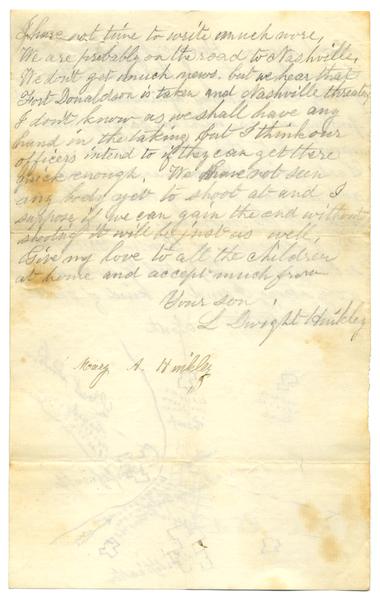 I have not time to write much more,
We are probably on the road to Nashville,
We dont get much news. but we hear that
Fort Donaldson is taken and Nashville threaten,
I dont know as we shall have any
hand in the taking, but I think our
officers intend to if they can get there
quick enough. We have not seen
any body yet to shoot at and I
suppose if we can gain the end without
shooting it will be just as well,
Give my love to all the children
at home and accept much from
Your son,
L Dwight Hinkley
A. Hinkley